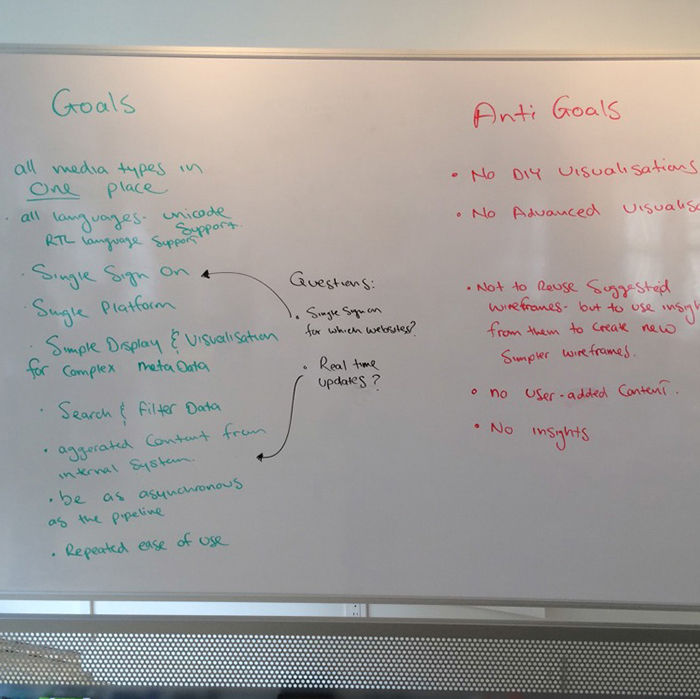 Goals
all media types in
One place
· all languages - unicode
Support.
RTL language Support
· Single Sign On
· Single Platform
· Simple Display & Visualisation
for Complex meta Data
· Search & Filter Data
· aggerated Content from
internal System.
· be as asynchronous
as the pipeline
· Repeated ease of use
Questions:
· Single Sign on
for which websites?
· Real time
updates?
Anti Goals
· No DIY Visualisations
· No Advanced Visualisa
· Not to Reuse Suggested
wireframes - but to use insigh
from them to create new
Simpler wireframes.
· no user-added Content.
· No insights